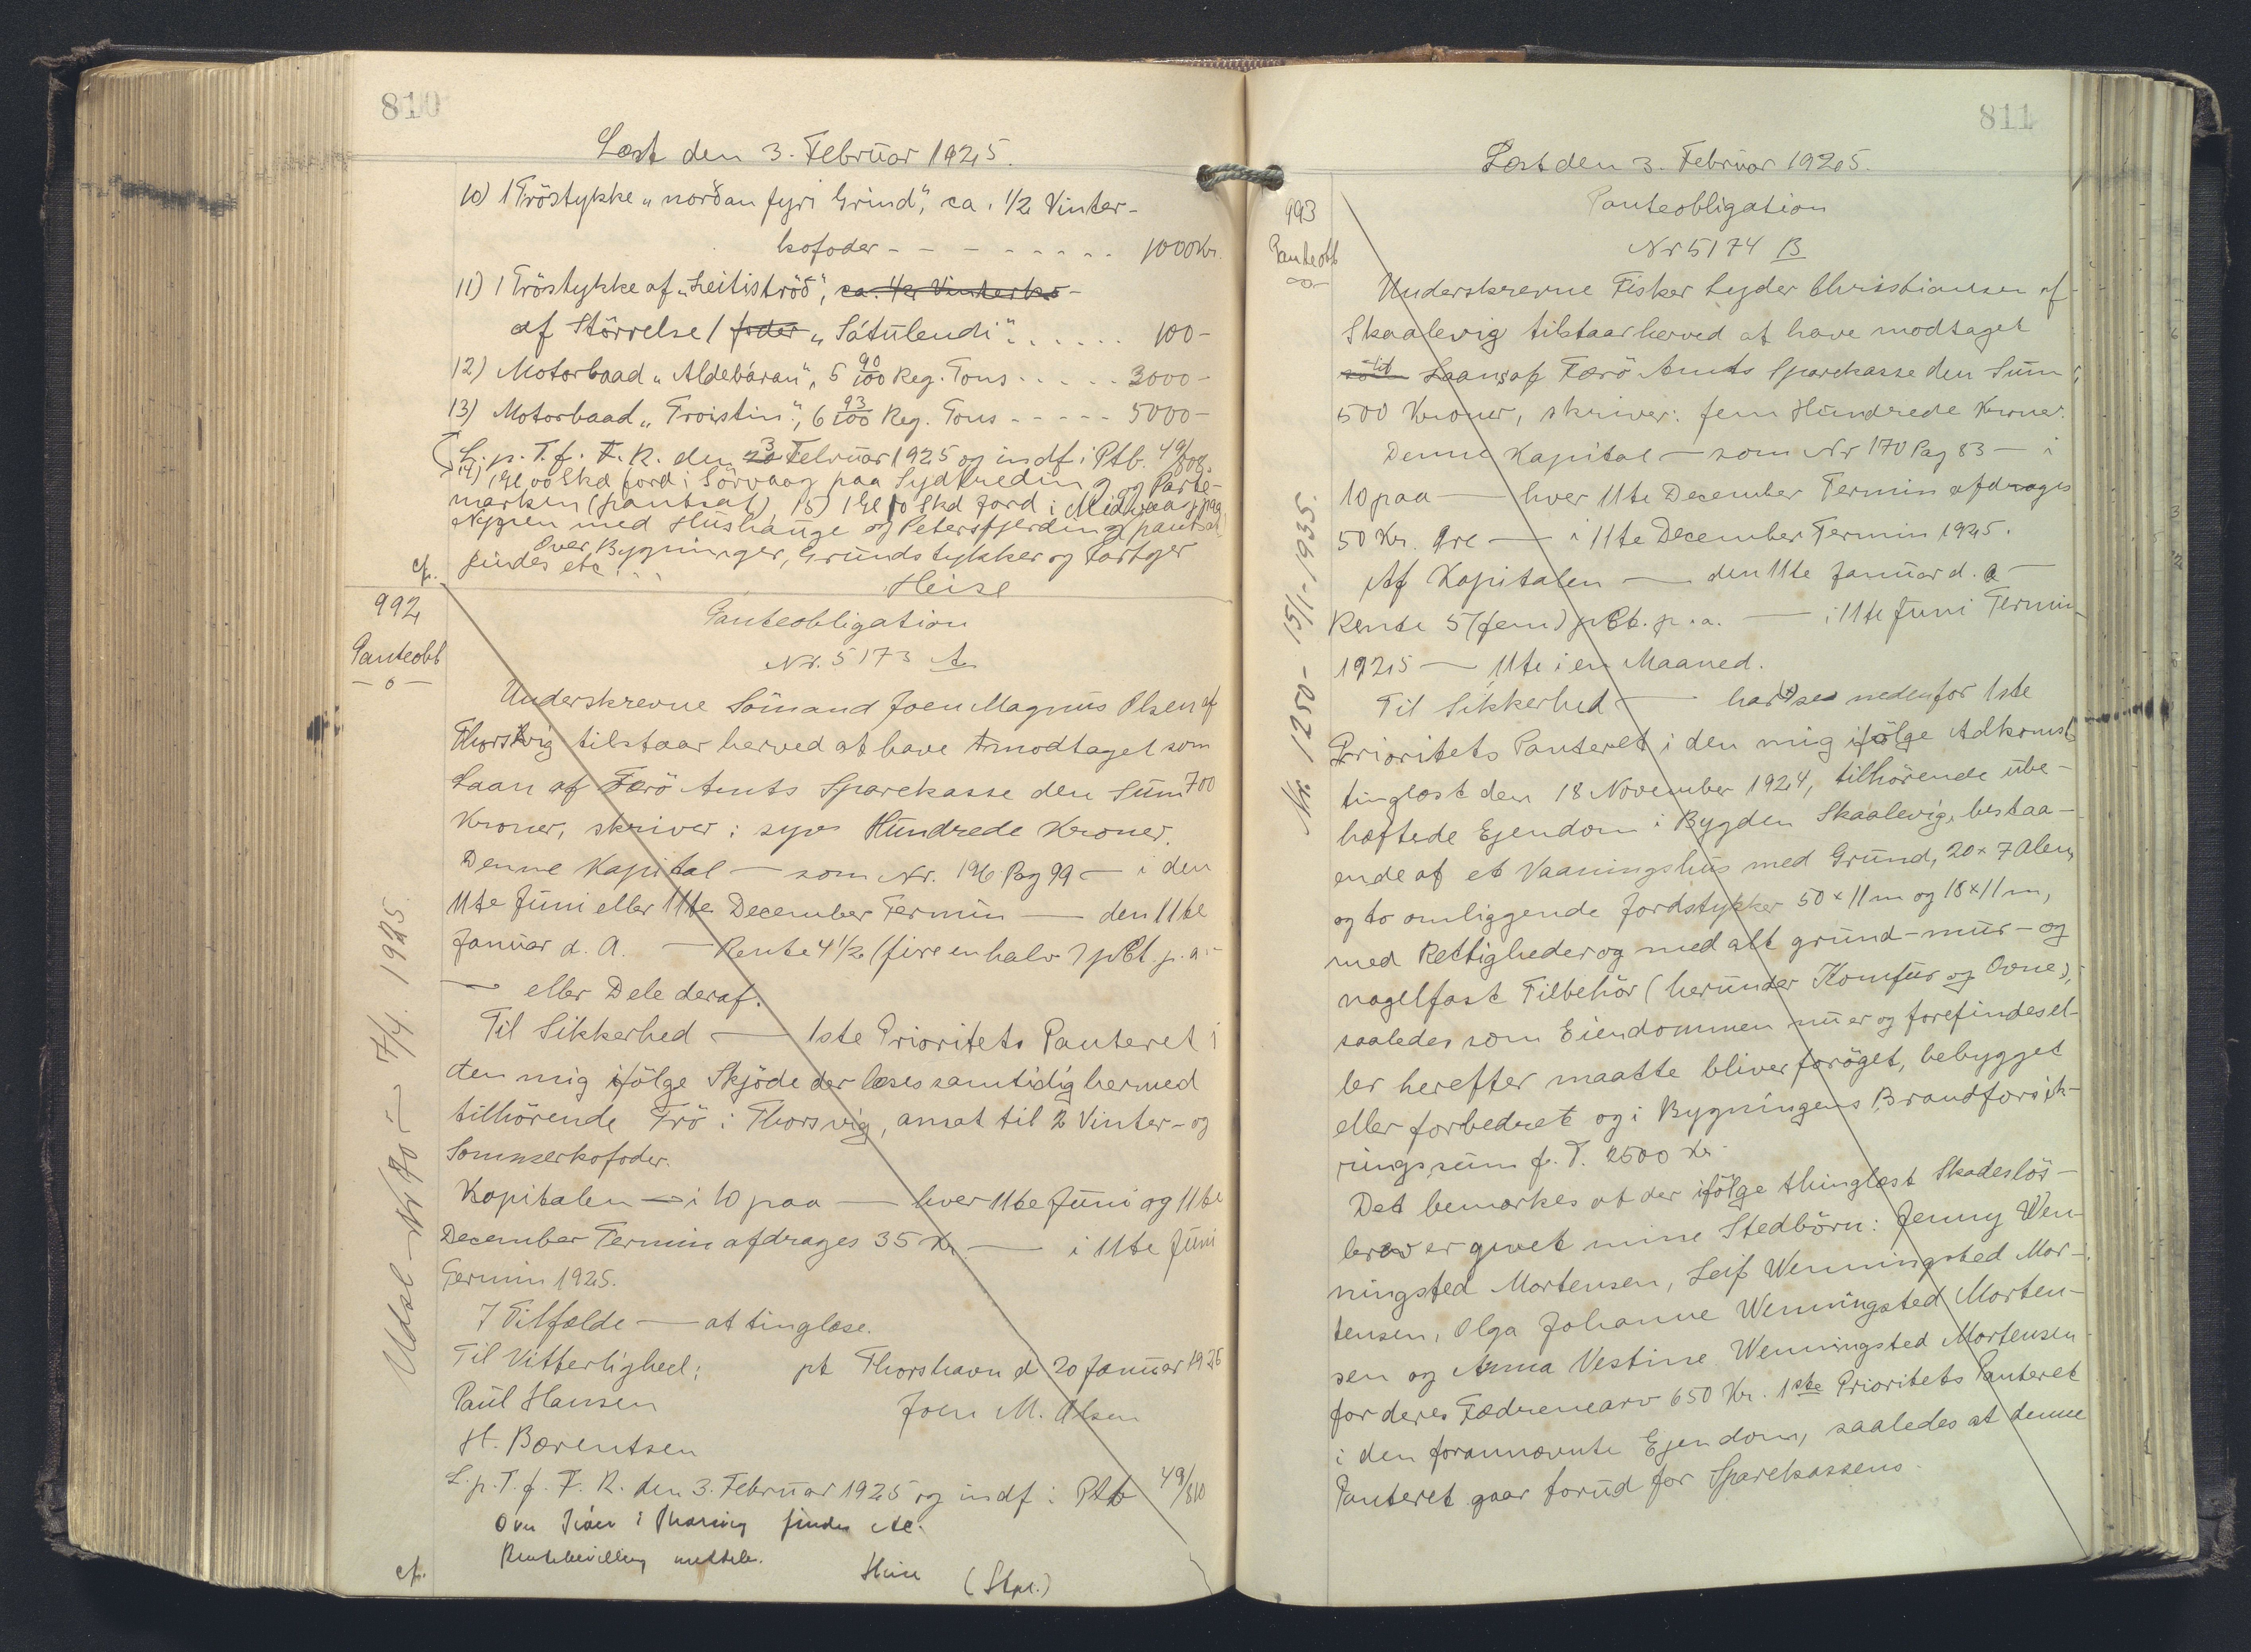 810
Læst den 3. Februar 1925.
10) 1 Tröstykke „norðan fyri Grind“, ca. 1/2 Vinter-
kofoder - - - - - - - - 1000 Kr.
11) 1 Tröstykke af „Leitiströð“, ca. 1/2 Vinterko-
af Större­lse / foder „Sátulendi“ . . . . . . 100 -
12) Motorbaad „Aldebáran“, 5 90/100 Reg. Tons - - - - - 3000 -
13) Motorbaad „Troistin“, 6 93/100 Reg. Tons - - - - - 5000 -
L. p. T. f. F. R. den 3 Februar 1925 og indf i Ptb. 49/808.
14) 1 Gl 00 Skd Jord i Sörvaag paa Sydtreding og Parte-
marken (pantsat) 15) 1 Gl 10 Skd Jord i Midvaag, paa
Nygren med Hushauge og Petersfjerding (pantsat
Over Bygninger, Grundstykker og Fartøjer
findes etc . . .
cf.
Heise
992
Panteobl
- o -
Panteobligation
Nr. 5173 A
Underskrevne Sömand Joen Magnus Olsen af
Thorsvig tilstaar herved at have modtaget som
Laan af Færö Amts Sparekasse den Sum 700
Kroner, skriver: syv Hundrede Kroner.
Denne Kapital — som Nr. 196 Pag 99 — i den
11te Juni eller 11te December Termin — den 11te
Januar d. A. — Rente 4 1/2 (fire en halv) pCt. p. a. -
— eller Dele deraf.
Til Sikkerhed — 1ste Prioritets Panteret i
den mig ifölge Skjöde der læses samtidig hermed
tilhörende Trö i Thorsvig, ansat til 2 Vinter- og
Sommerkofoder.
Kapitalen — i 10 paa — hver 11te Juni og 11te
December Termin afdrages 35 Kr — i 11te Juni
Termin 1925.
I Tilfælde — at tinglæse.
Til Vitterlighed: pt Thorshavn d 20 Januar 1925
Paul Hansen Joen M. Olsen
H. Bærentsen
L. p. T. f. F. R. den 3. Februar 1925 og indf i Ptb 49/810
Over Tröen i Thorsvig findes etc.
Rentebevilling meddelt.
cf.
Heise (Stpl.)
1925
811
Læst den 3. Februar 1925.
993
Panteobl
- o -
Panteobligation
Nr 5174 B
Underskrevne Fisker Lyder Christiansen af
Skaalevig tilstaar herved at have modtaget
til Laans af Færö Amts Sparekasse den Sum
500 Kroner, skriver: fem Hundrede Kroner.
Denne Kapital — som Nr 170 Pag 83 — i
10 paa — hver 11te December Termin afdrages
50 Kr. Gre — i 11te December Termin 1925.
Af Kapitalen — den 11te Januar d. a —
Rente 5 (fem) pCt. p. a. — i 11te Juni Termin
1925 — 11te i en Maaned.
Til Sikkerhed — har (x) se nedenfor 1ste
Prioritets Panteret i den mig ifölge Adkomst
tinglæst den 18 November 1924, tilhörende ube-
hæftede Ejendom i Bygden Skaalevig, bestaa-
ende af et Vaaningshus med Grund, 20 x 7 Alen,
og to omliggende Jordstykker 50 x 11 m og 18 x 11 m,
med Rettigheder og med alt grund- mur- og
nagelfast Tilbehör (herunder Komfur og Ovne),
saaledes som Eiendommen nu er og forefindes el-
ler herefter maatte bliver foröget, bebygget
eller forbedret og i Bygningens Brandforsik-
ringssum p. T. 2500 Kr.
Det bemærkes at der ifölge thinglæst Skadeslös-
brev er givet mine Stedbörn: Jenny Wen-
ningsted Mortensen, Leif Wenningsted Mor-
tensen, Olga Johanne Wenningsted Morten-
sen og Anna Vestine Wenningsted Mortensen
for deres Fædrenearv 650 Kr. 1ste Prioritets Panteret
i den forannævnte Ejendom, saaledes at denne
Panteret gaar forud for Sparekassens
Nr. 1250 - 15/1-1935.